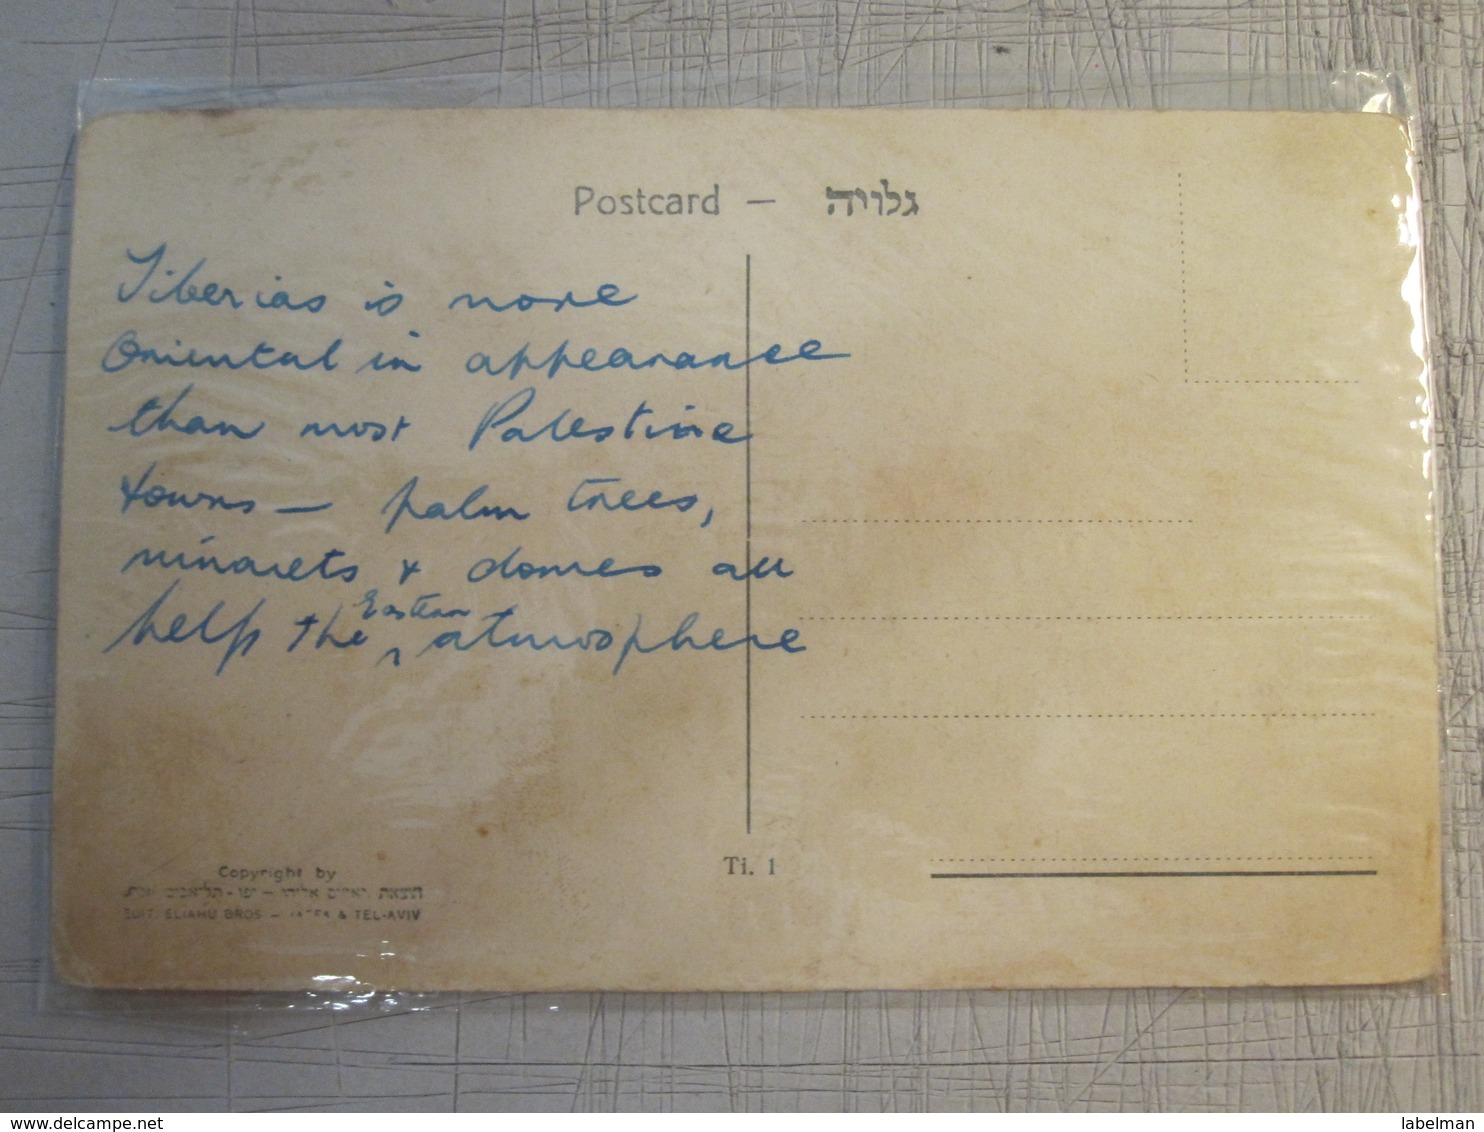 Postcard — גלויה
Tiberias is more
Oriental in appearance
than most Palestine
towns — palm trees,
minarets & domes all
help the Eastern atmosphere
Ti. 1
Copyright by
הוצאת אליהו - יפו - תל-אביב
EDIT. ELIAHU BROS - JAFFA & TEL-AVIV
delcampe.net
labelman